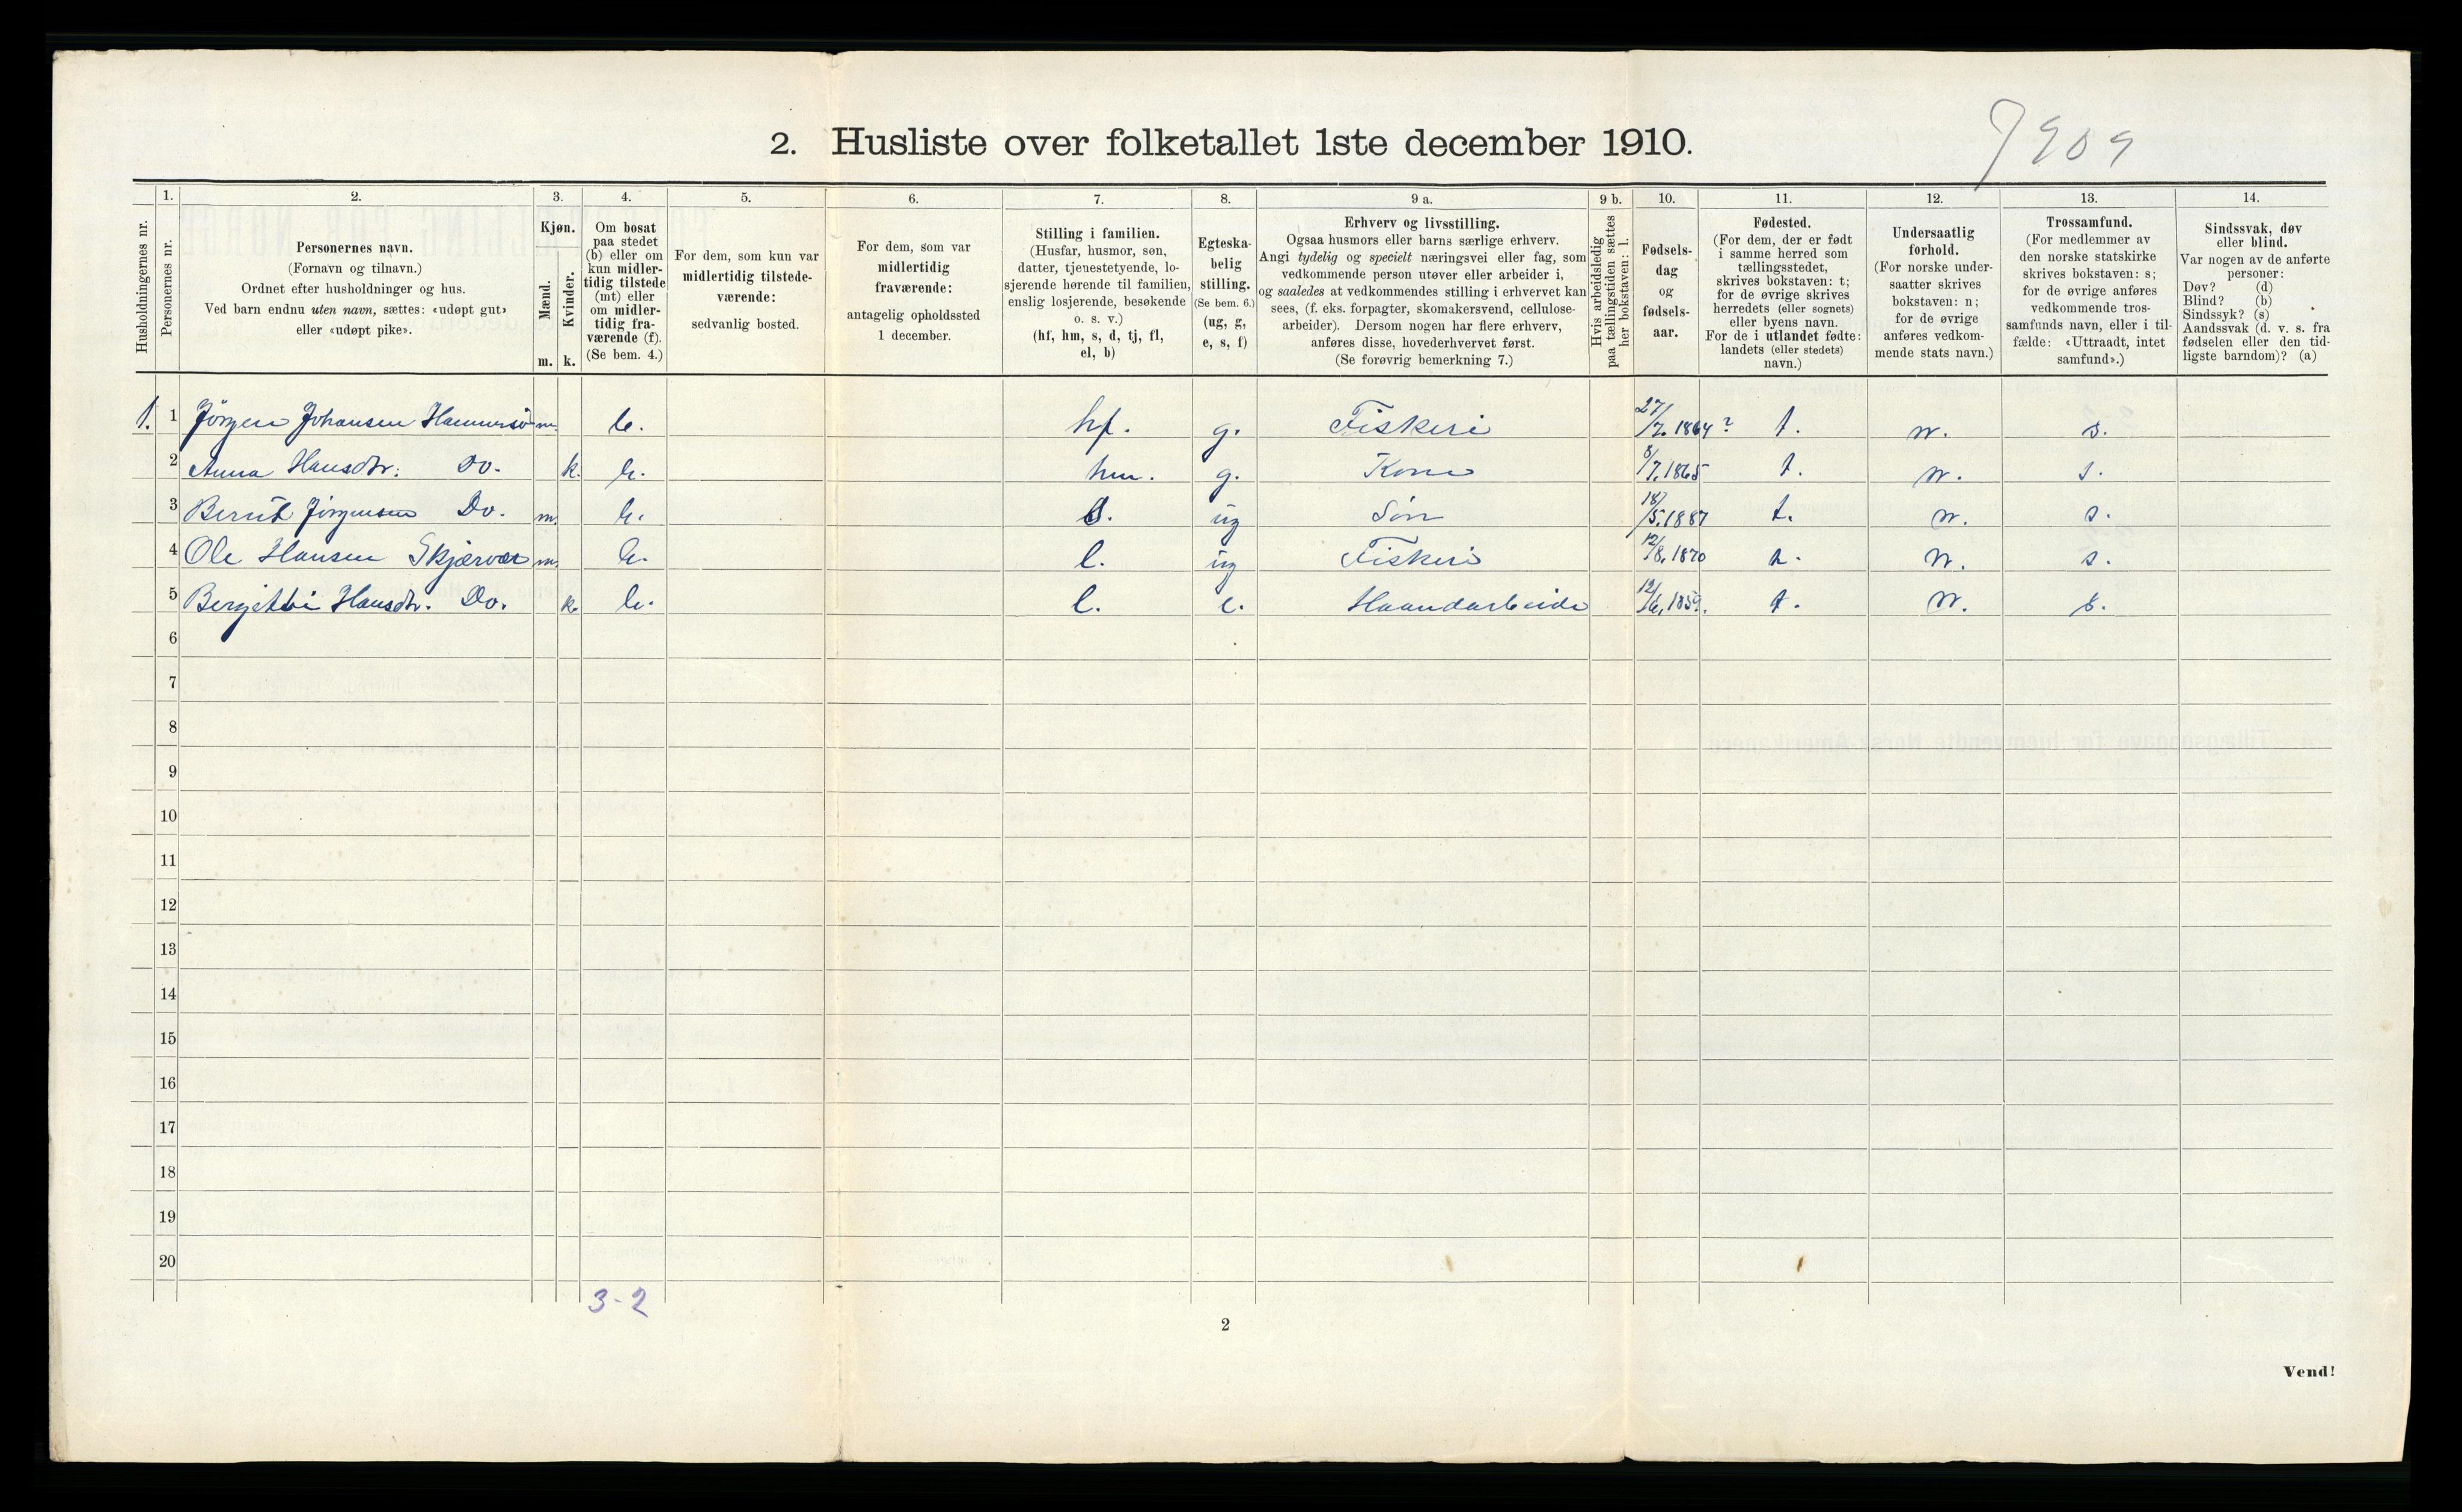 7909
2. Husliste over folketallet 1ste december 1910.
Husholdningernes nr.
1.
Personernes nr.
2.
Personernes navn.
(Fornavn og tilnavn.)
Ordnet efter husholdninger og hus.
Ved barn endnu uten navn, sættes: «udøpt gut»
eller «udøpt pike».
3.
Kjøn.
Mænd.
Kvinder.
m. k.
4.
Om bosat
paa stedet
(b) eller om
kun midler-
tidig tilstede
(mt) eller
om midler-
tidig fra-
værende (f).
(Se bem. 4.)
5.
For dem, som kun var
midlertidig tilstede-
værende:
sedvanlig bosted.
6.
For dem, som var
midlertidig
fraværende:
antagelig opholdssted
1 december.
7.
Stilling i familien.
(Husfar, husmor, søn,
datter, tjenestetyende, lo-
sjerende hørende til familien,
enslig losjerende, besøkende
o. s. v.)
(hf, hm, s, d, tj, fl,
el, b)
8.
Egteska-
belig
stilling.
(Se bem. 6.)
(ug, g,
e, s, f)
9 a.
Erhverv og livsstilling.
Ogsaa husmors eller barns særlige erhverv.
Angi tydelig og specielt næringsvei eller fag, som
vedkommende person utøver eller arbeider i,
og saaledes at vedkommendes stilling i erhvervet kan
sees, (f. eks. forpagter, skomakersvend, cellulose-
arbeider). Dersom nogen har flere erhverv,
anføres disse, hovederhvervet først.
(Se forøvrig bemerkning 7.)
9 b.
Hvis arbeidsledig
paa tællingstiden sættes
her bokstaven: l.
10.
Fødsels-
dag
og
fødsels-
aar.
11.
Fødested.
(For dem, der er født
i samme herred som
tællingsstedet,
skrives bokstaven: t;
for de øvrige skrives
herredets (eller sognets)
eller byens navn.
For de i utlandet fødte:
landets (eller stedets)
navn.)
12.
Undersaatlig
forhold.
(For norske under-
saatter skrives
bokstaven: n;
for de øvrige
anføres vedkom-
mende stats navn.)
13.
Trossamfund.
(For medlemmer av
den norske statskirke
skrives bokstaven: s;
for de øvrige anføres
vedkommende tros-
samfunds navn, eller i til-
fælde: «Uttraadt, intet
samfund».)
14.
Sindssvak, døv
eller blind.
Var nogen av de anførte
personer:
Døv? (d)
Blind? (b)
Sindssyk? (s)
Aandssvak (d. v. s. fra
fødselen eller den tid-
ligste barndom)? (a)
1. 1 Jörgen Johansen m. b. hf. g. Fiskeri 27/7. 1864 ? t. n. s.
2 Anna Hansdtr: Do. k. b. hm. g. Kone 8/7. 1865 t. n. s.
3 Bernt Jörgensen Do. m. b. s. ug Sön 18/5. 1887 t. n. s.
4 Ole Hansen Skjærvær m. b. l. ug Fiskeri 12/8. 1870 t. n. s.
5 Hansdtr. Do. k. b. l. e. Haandarbeide 12/6. 1859. t. n. s.
6
7
8
9
10
11
12
13
14
15
16
17
18
19
20
3-2
2
Vend!